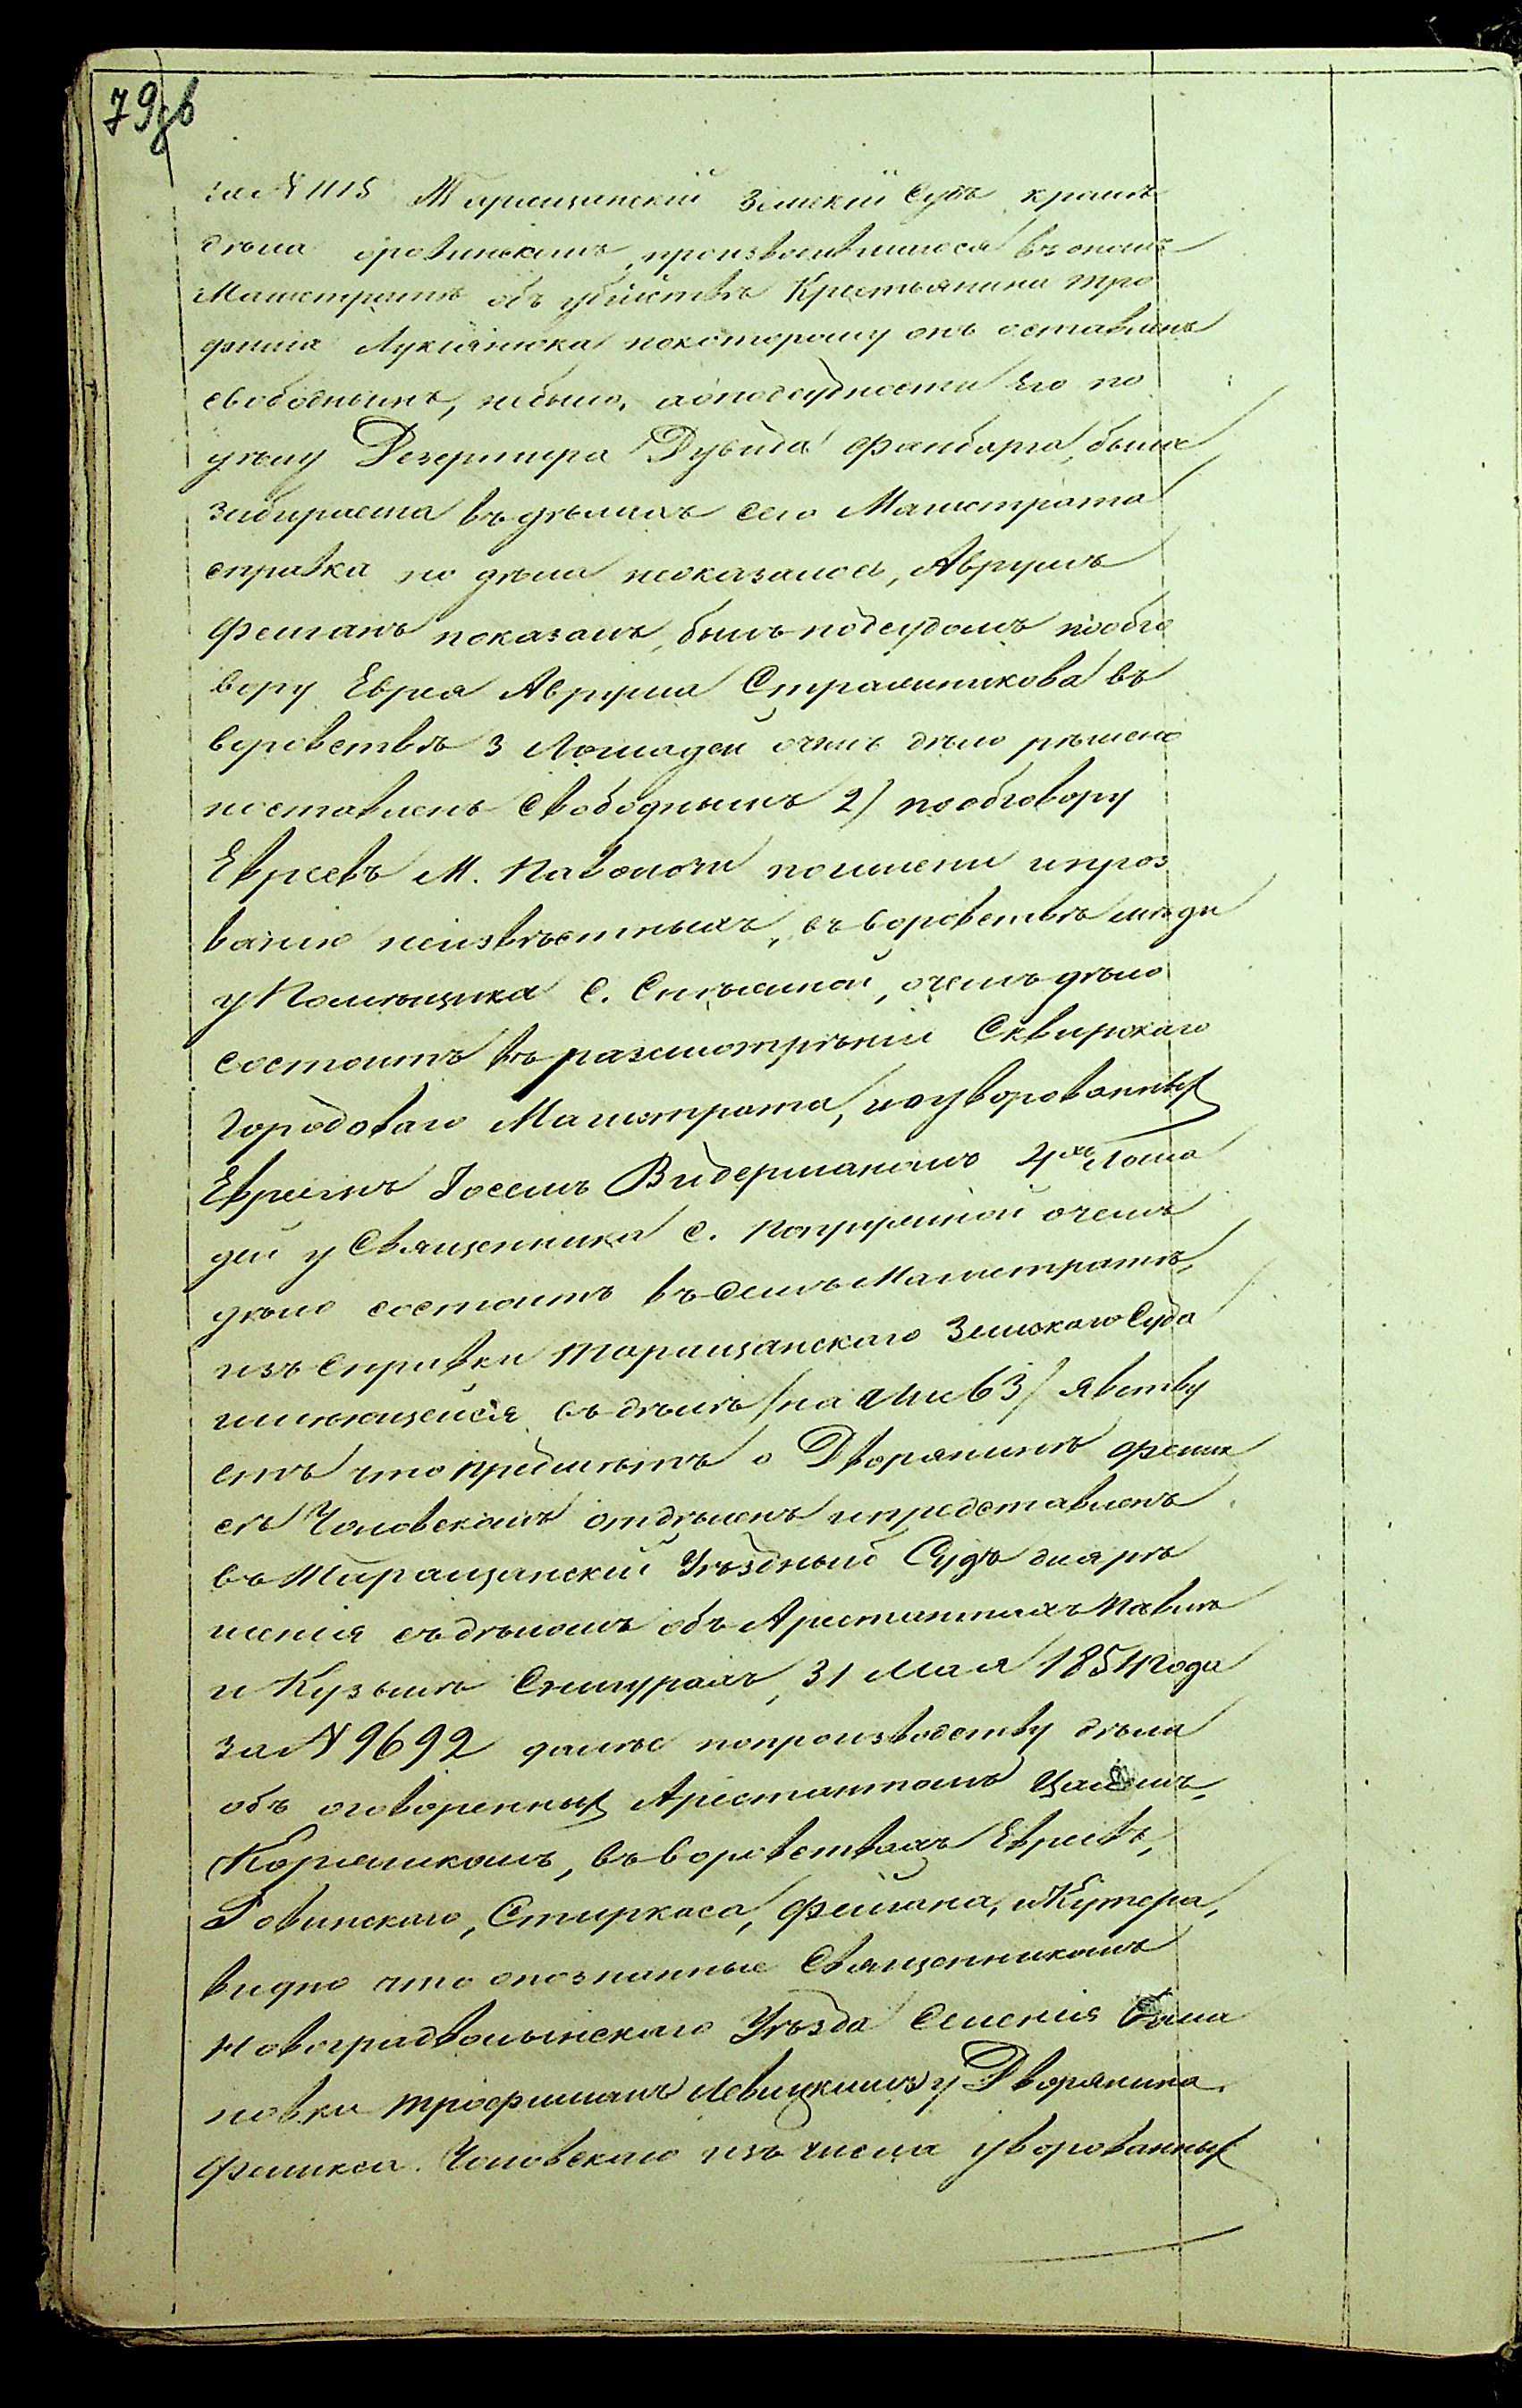 79об
за № 1115 Таращанскій Земскій Судъ кромѣ
дѣла оровинскомъ, производившагося въ ономъ
Магистратѣ объ убійствѣ Крестьянина Тро
фима Лукіянюка покоторому онъ оставленъ
свободнымъ, небыло, аоподсудности Его по
дѣлу Дезертира Дувида Фанбарга, была
забираема въ дѣлахъ сего Магистрата
справка но дѣла неоказалось, Аврумъ
Фельманъ показалъ, былъ подсудомъ пообго
вору Еврея Аврума Стральникова въ
воровствѣ 3 Лошадей очемъ дѣло рѣшено
иоставленъ Свободнымъ 2) пообговору
Евреевъ М. Паволочи поимени ипроз
ванію неизвѣстныхъ, въ воровствѣ мѣди
у Помѣщика С. , очемъ дѣло
состоитъ въ разсмотрѣніи Сквирскаго
Городоваго Магистрата, и оуворованныхъ
Евреемъ Іосемъ Видерманомъ 2хъ Лоша
дей у Священника С. очемъ
дѣло состоитъ въ семъ Магистратѣ,
изъ Справки Таращанскаго Земскаго Суда
имѣющейся въ дѣлѣ /на лис 63/ явству
етъ что предметъ о Дворянинѣ Фелик
сѣ Чоловскомъ отдѣленъ ипредставленъ
въ Таращанскій Уѣздный Судъ для рѣ
шенія съ дѣломъ объ Арестантахъ Павлѣ
и Кузьмѣ Снигурахъ, 31 Мая 1851 года
за № 9692 далѣе попроизводству дѣла
объ оговоренныхъ Арестантомъ
Корчмикомъ, въ воровствахъ Евреевъ,
Ровинскаго, Стиркаса, Фельмана, и Кутера,
видно что опознанные Священникомъ
Новоградволынскаго Уѣзда Селенія
новки Трофимомъ Левицкимъ у Дворянина
Феликса Чоловскаго изъ числа уворованныхъ